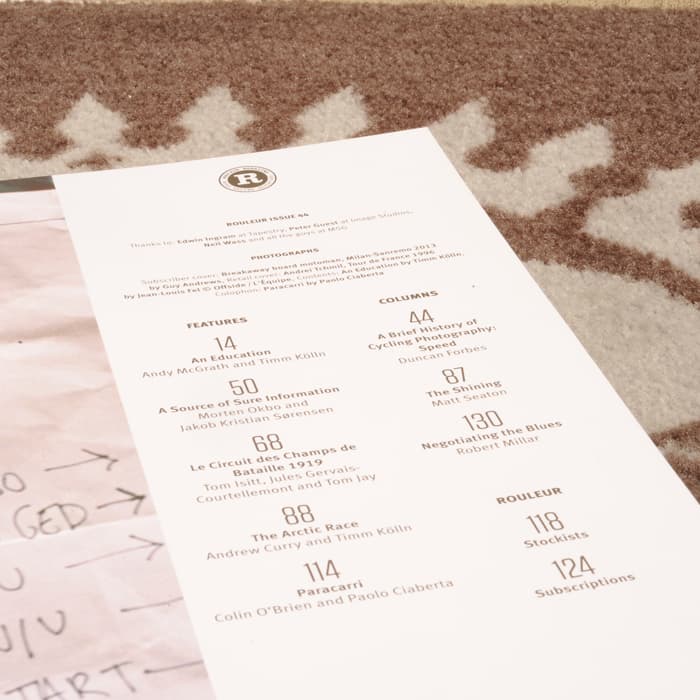 R
ROULEUR ISSUE 44
Thanks to: Edwin Ingram at Tapestry, Peter Guest at Image Studios,
Neil Wass and all the guys at MSG
PHOTOGRAPHS
Subscriber cover: Breakaway board motoman, Milan-Sanremo 2013
by Guy Andrews, Retail cover: Andrei Tchmil, Tour de France 1996
by Jean-Louis Fel © Offside / L'Équipe, Contents: An Education by Timm Kölln,
Colophon: Paracarri by Paolo Ciaberta
FEATURES
14
An Education
Andy McGrath and Timm Kölln
50
A Source of Sure Information
Morten Okbo and
Jakob Kristian Sørensen
68
Le Circuit des Champs de
Bataille 1919
Tom Isitt, Jules Gervais-
Courtellemont and Tom Jay
88
The Arctic Race
Andrew Curry and Timm Kölln
114
Paracarri
Colin O'Brien and Paolo Ciaberta
COLUMNS
44
A Brief History of
Cycling Photography:
Speed
Duncan Forbes
87
The Shining
Matt Seaton
130
Negotiating the Blues
Robert Millar
ROULEUR
118
Stockists
124
Subscriptions
GED